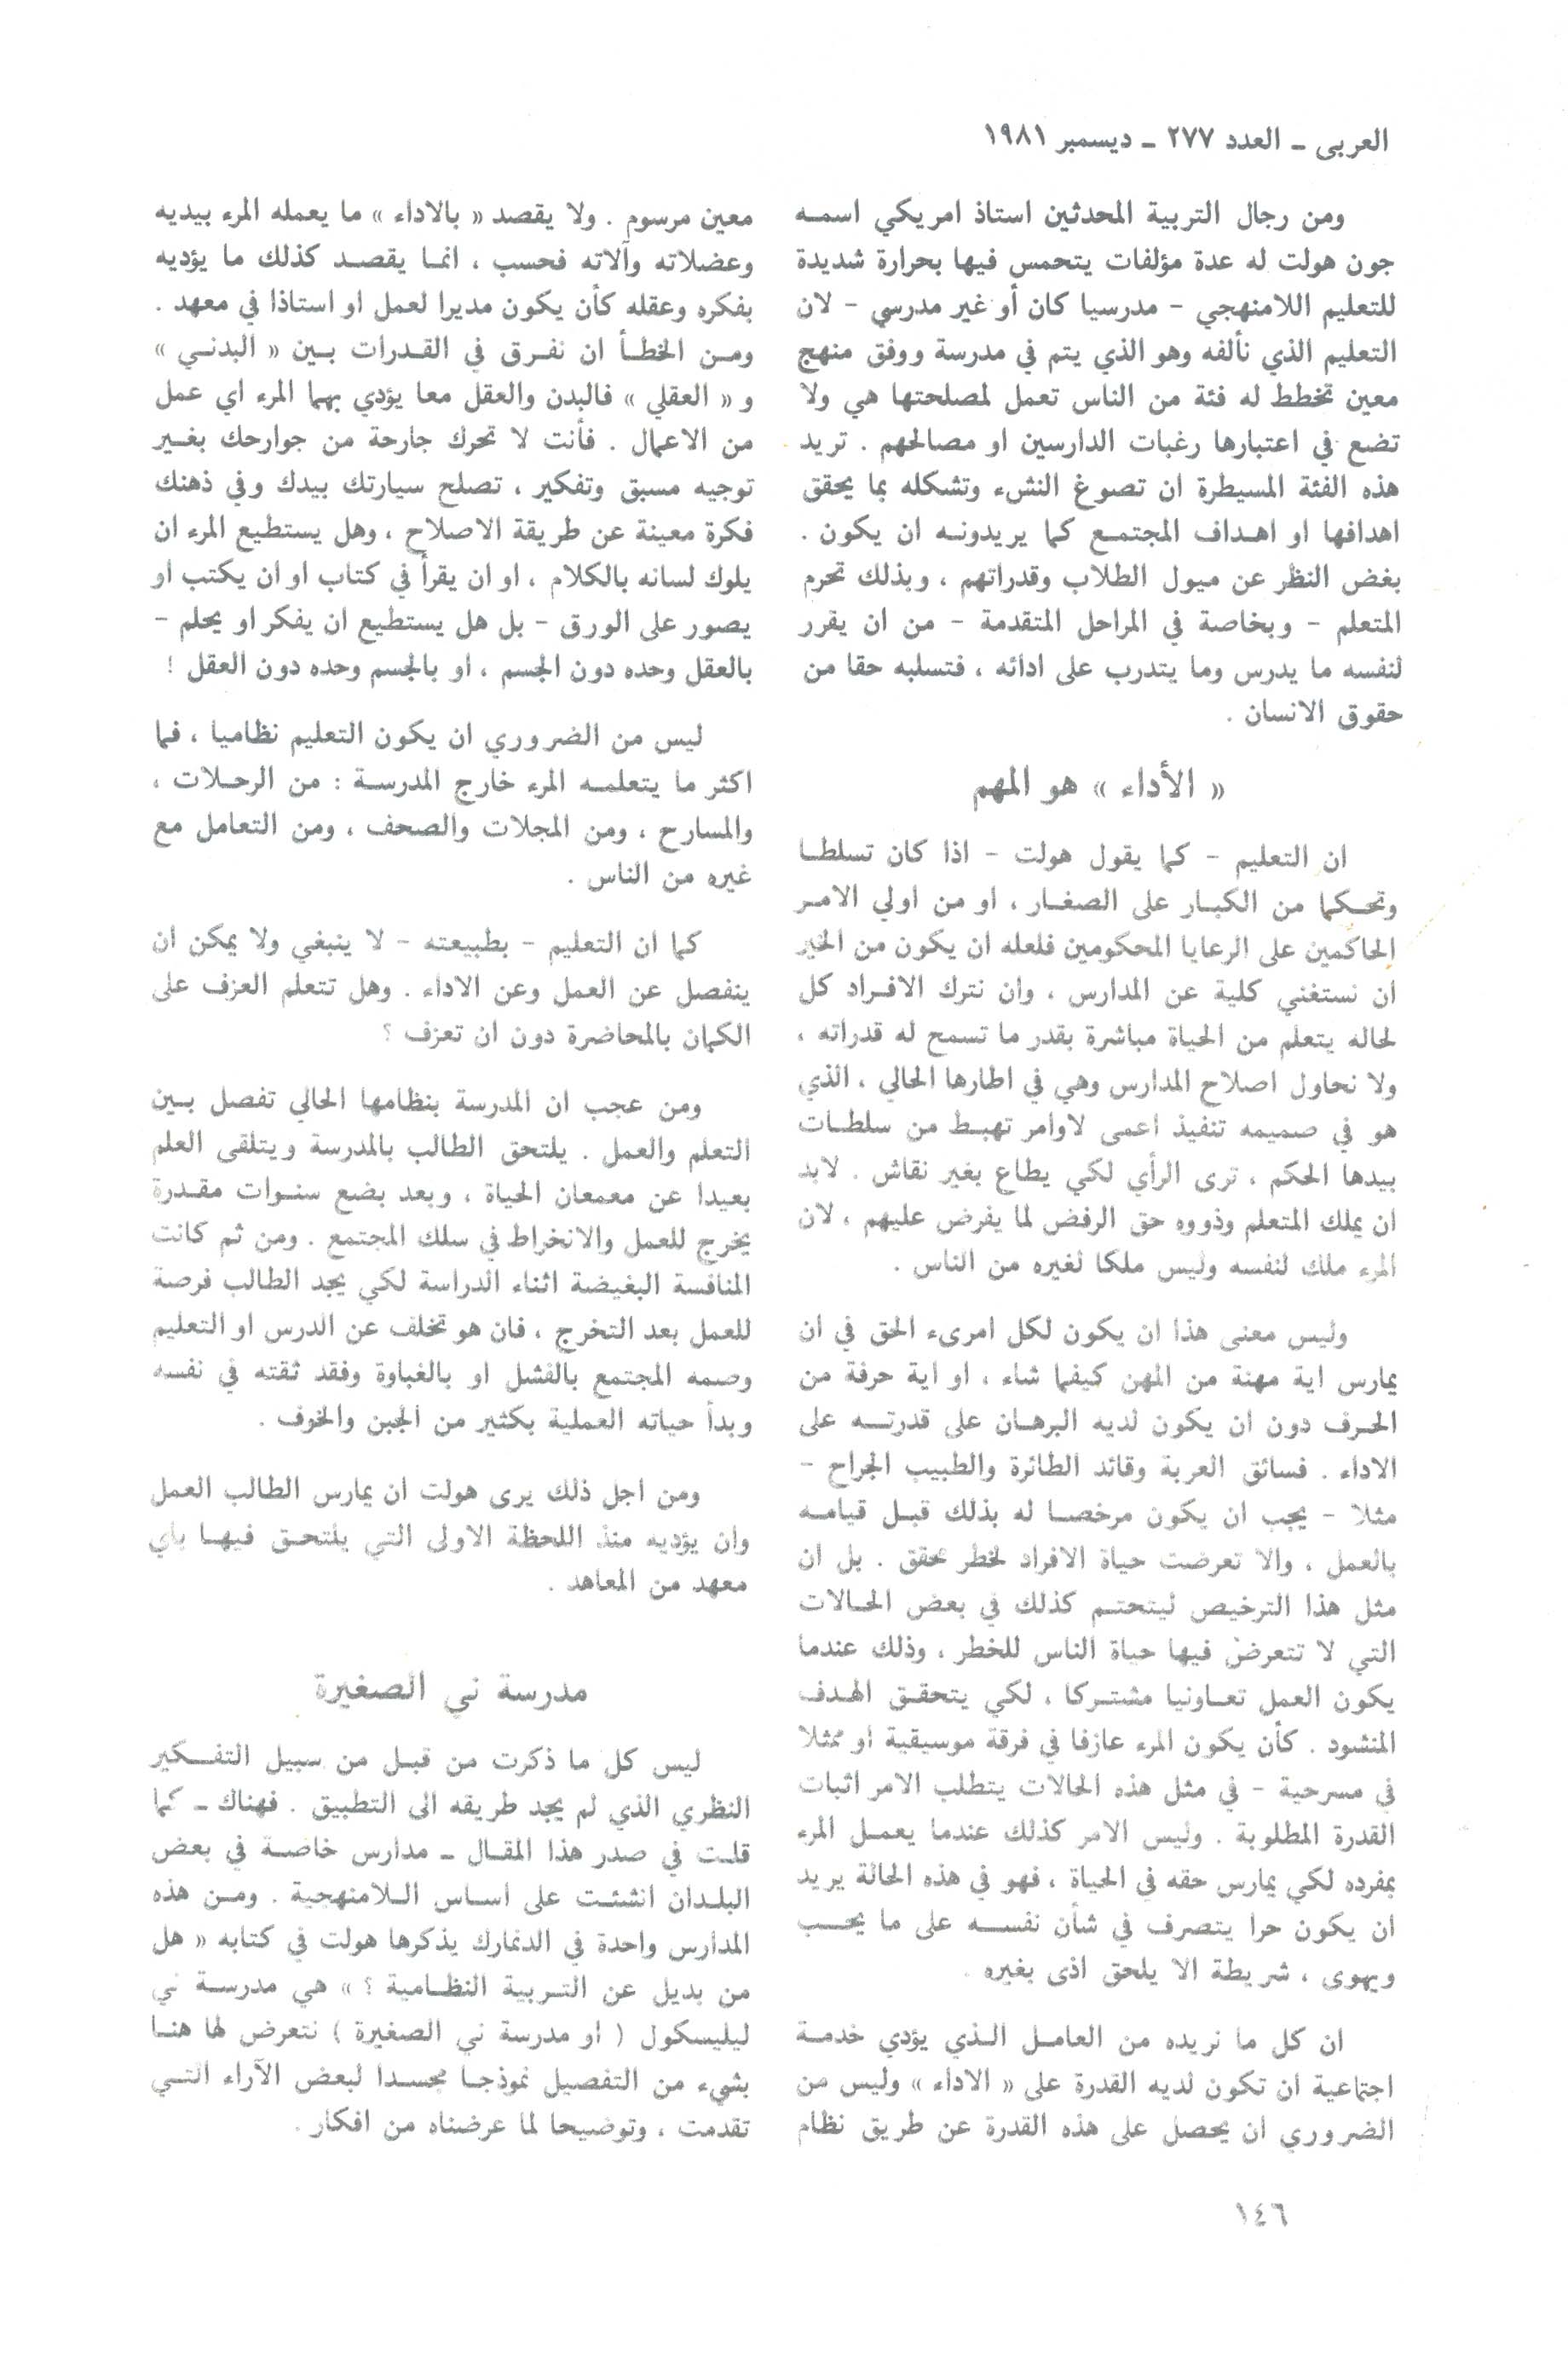 العربي ـ العدد ٢٧٧ ـ ديسمبر ١٩٨١
ومن رجال التربية المحدثين استاذ امريكي اسمه
جون هولت له عدة مؤلفات يتحمس فيها بحرارة شديدة
للتعليم اللامنهجي - مدرسيا كان أو غير مدرسي - لان
التعليم الذي نألفه وهو الذي يتم في مدرسة ووفق منهج
معين تخطط له فئة من الناس تعمل لمصلحتها هي ولا
تضع في اعتبارها رغبات الدارسين او مصالحهم . تريد
هذه الفئة المسيطرة ان تصوغ النشء وتشكله بما يحقق
اهدافها او اهداف المجتمع كما يريدونه ان يكون .
بغض النظر عن ميول الطلاب وقدراتهم ، وبذلك تحرم
المتعلم - وبخاصة في المراحل المتقدمة - من ان يقرر
لنفسه ما يدرس وما يتدرب على ادائه ، فتسلبه حقا من
حقوق الانسان .
« الأداء » هو المهم
ان التعليم - كما يقول هولت - اذا كان تسلطا
وتحكما من الكبار على الصغار ، او من اولي الامر
الحاكمين على الرعايا المحكومين فلعله ان يكون من الخير
ان نستغني كلية عن المدارس ، وان نترك الافراد كل
لحاله يتعلم من الحياة مباشرة بقدر ما تسمح له قدراته ،
ولا نحاول اصلاح المدارس وهي في اطارها الحالي ، الذي
هو في صميمه تنفيذ اعمى لاوامر تهبط من سلطات
بيدها الحكم ، ترى الرأي لكي يطاع بغير نقاش . لابد
ان يملك المتعلم وذووه حق الرفض لما يفرض عليهم ، لان
المرء ملك لنفسه وليس ملكا لغيره من الناس .
وليس معنى هذا ان يكون لكل امرىء الحق في ان
يمارس اية مهنة من المهن كيفما شاء ، او اية حرفة من
الحرف دون ان يكون لديه البرهان على قدرته على
الاداء . فسائق العربة وقائد الطائرة والطبيب الجراح -
مثلا - يجب ان يكون مرخصا له بذلك قبل قيامه
بالعمل ، والا تعرضت حياة الافراد لخطر محقق . بل ان
مثل هذا الترخيص ليتحتم كذلك في بعض الحالات
التي لا تتعرض فيها حياة الناس للخطر ، وذلك عندما
يكون العمل تعاونيا مشتركا ، لكي يتحقق الهدف
المنشود . كأن يكون المرء عازفا في فرقة موسيقية او ممثلا
في مسرحية - في مثل هذه الحالات يتطلب الامر اثبات
القدرة المطلوبة . وليس الامر كذلك عندما يعمل المرء
بمفرده لكي يمارس حقه في الحياة ، فهو في هذه الحالة يريد
ان يكون حرا يتصرف في شأن نفسه على ما يحب
ويهوى ، شريطة الا يلحق اذى بغيره .
ان كل ما نريده من العامل الذي يؤدي خدمة
اجتماعية ان تكون لديه القدرة على « الاداء » وليس من
الضروري ان يحصل على هذه القدرة عن طريق نظام
معين مرسوم . ولا يقصد « بالاداء » ما يعمله المرء بيديه
وعضلاته وآلاته فحسب ، انما يقصد كذلك ما يؤديه
بفكره وعقله كأن يكون مديرا لعمل او استاذا في معهد .
ومن الخطأ ان نفرق في القدرات بين « البدني »
و « العقلي » فالبدن والعقل معا يؤدي بهما المرء اي عمل
من الاعمال . فأنت لا تحرك جارحة من جوارحك بغير
توجيه مسبق وتفكير ، تصلح سيارتك بيدك وفي ذهنك
فكرة معينة عن طريقة الاصلاح ، وهل يستطيع المرء ان
يلوك لسانه بالكلام ، او ان يقرأ في كتاب او ان يكتب او
يصور على الورق - بل هل يستطيع ان يفكر او يحلم -
بالعقل وحده دون الجسم ، او بالجسم وحده دون العقل !
ليس من الضروري ان يكون التعليم نظاميا ، فما
اكثر ما يتعلمه المرء خارج المدرسة : من الرحلات ،
والمسارح ، ومن المجلات والصحف ، ومن التعامل مع
غيره من الناس .
كما ان التعليم - بطبيعته - لا ينبغي ولا يمكن ان
ينفصل عن العمل وعن الاداء . وهل تتعلم العزف على
الكمان بالمحاضرة دون ان تعزف ؟
ومن عجب ان المدرسة بنظامها الحالي تفصل بين
التعلم والعمل . يلتحق الطالب بالمدرسة ويتلقى العلم
بعيدا عن معمعان الحياة ، وبعد بضع سنوات مقدرة
يخرج للعمل والانخراط في سلك المجتمع . ومن ثم كانت
المنافسة البغيضة اثناء الدراسة لكي يجد الطالب فرصة
للعمل بعد التخرج ، فان هو تخلف عن الدرس او التعليم
وصمه المجتمع بالفشل او بالغباوة وفقد ثقته في نفسه
وبدأ حياته العملية بكثير من الجبن والخوف .
ومن اجل ذلك يرى هولت ان يمارس الطالب العمل
وان يؤديه منذ اللحظة الاولى التي يلتحق فيها بأي
معهد من المعاهد .
مدرسة ني الصغيرة
ليس كل ما ذكرت من قبل من سبيل التفكير
النظري الذي لم يجد طريقه الى التطبيق . فهناك ـ كما
قلت في صدر هذا المقال ـ مدارس خاصة في بعض
البلدان انشئت على اساس اللامنهجية . ومن هذه
المدارس واحدة في الدنمارك يذكرها هولت في كتابه « هل
من بديل عن التربية النظامية ؟ » هي مدرسة ني
ليليسكول ( او مدرسة ني الصغيرة ) نتعرض لها هنا
بشيء من التفصيل نموذجا مجسدا لبعض الآراء التي
تقدمت ، وتوضيحا لما عرضناه من افكار .
١٤٦